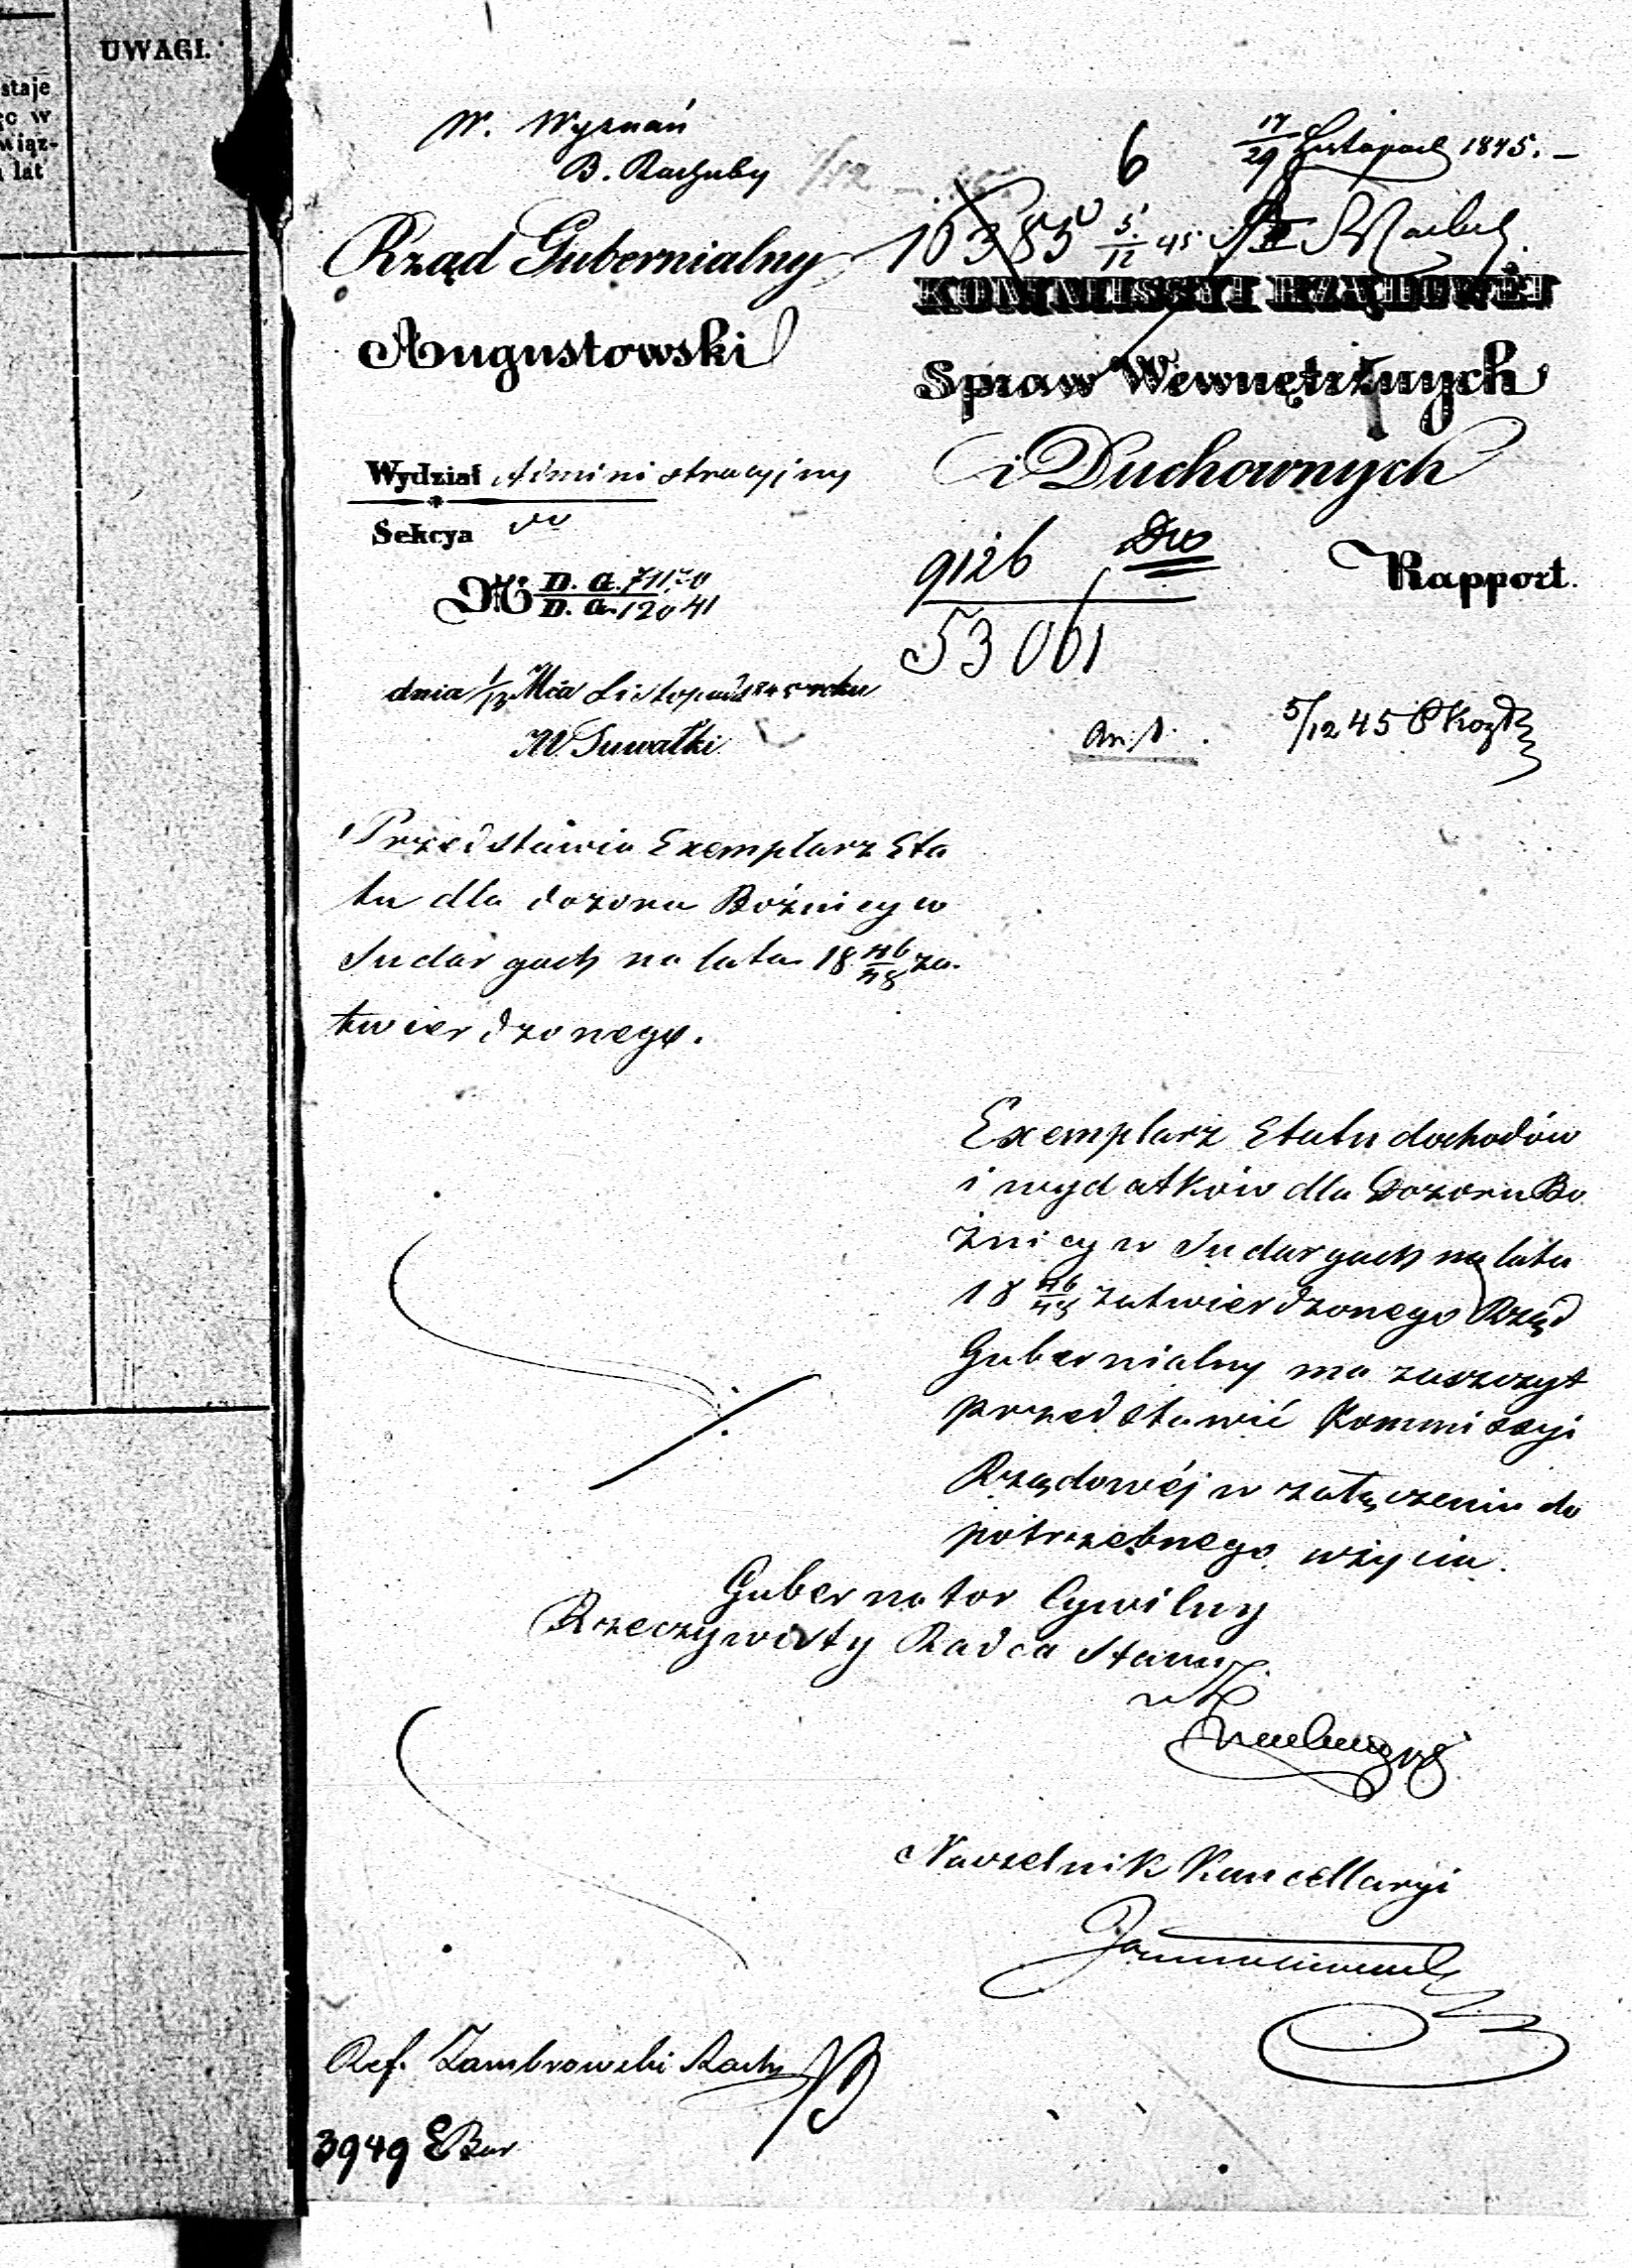 UWAGI.
staje
ęc w
wiąz-
lat
W. Wyznań
B. Rachuby
6
17/29 Listopad 1845.
Rząd Gubernialny
16385 5/12 45
Augustowski
KOMMISSYI RZĄDOWÉJ
Spraw Wewnętrznych
i Duchownych
Wydział Administracyjny
Sekcya
9126
53061
Rapport.
No D. G. 71170
D. G. 12041
dnia 1/13 Mca Listopada 1845 roku
W Suwałki
5/12 45
Przedstawia Exemplarz Eta
tu dla dozoru Bóżnicy w
Sudargach na lata 18 46/48 za
twierdzonego.
Exemplarz Etatu dochodów
i wydatków dla Dozoru Bo
żnicy w Sudargach na lata
18 46/48 zatwierdzonego Rząd
Gubernialny ma zaszczyt
przedstawić Kommissyi
Rządowéj w załączeniu do
potrzebnego użycia.
Gubernator Cywilny
Rzeczywisty Radca Stanu
Naczelnik Kancellaryi
Ref. Zambrowski
3949